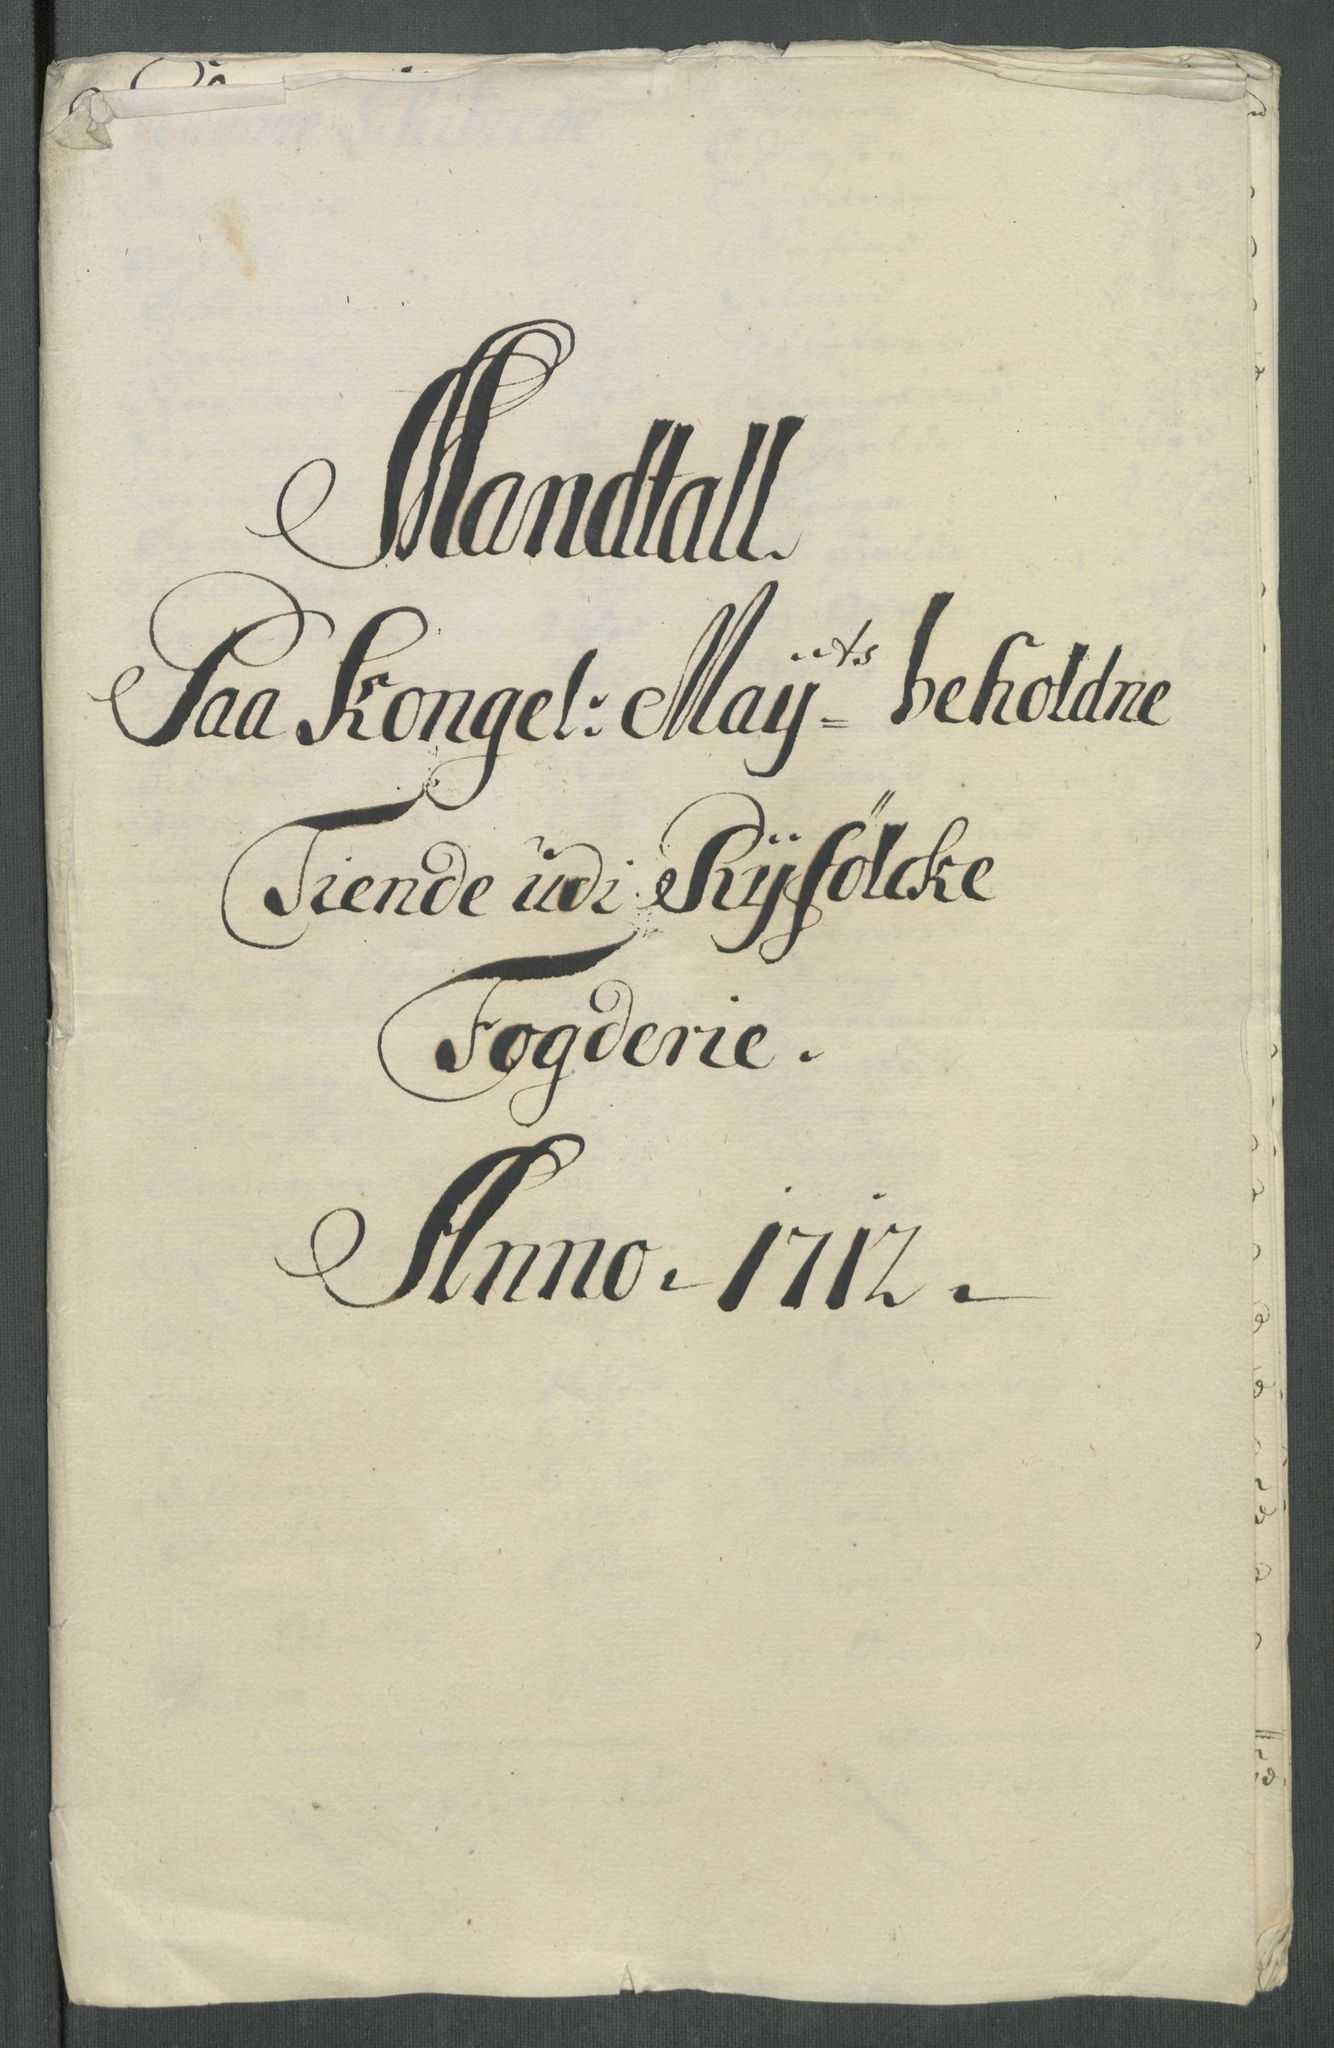 Mandtall.
Paa Kongel: Maÿ:ts beholdne
Tiende udi Rÿfölcke
Fogderie.
Anno. 1712.